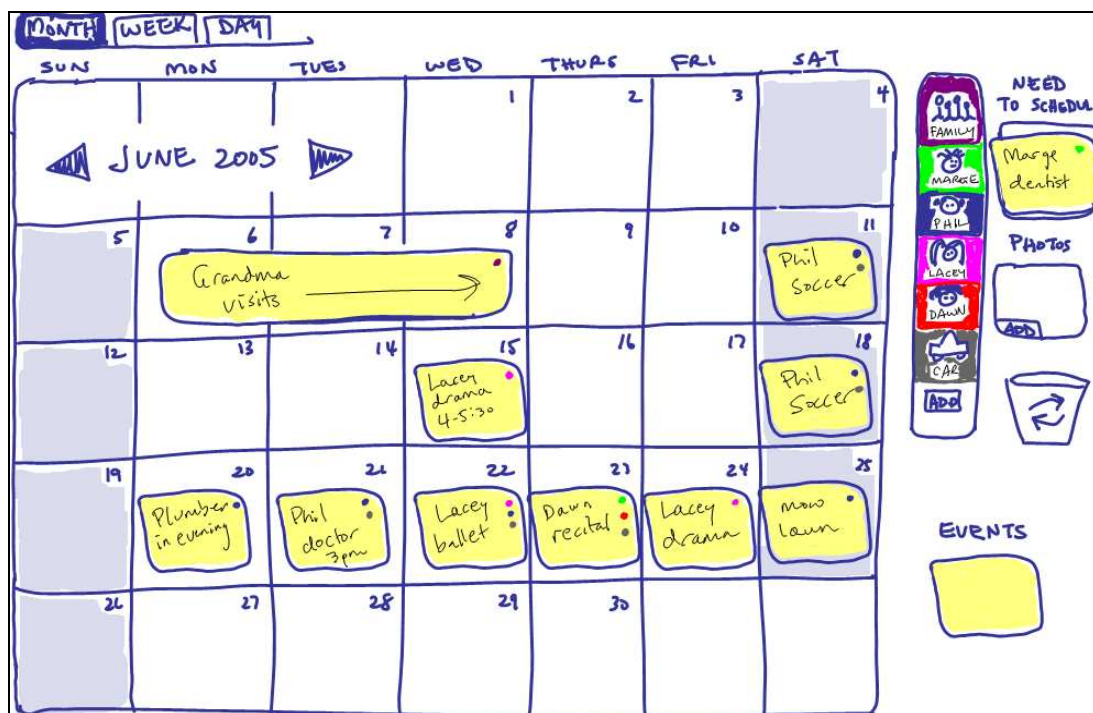 MONTH WEEK DAY
SUN MON TUES WED THURS FRI SAT
1 2 3 4
JUNE 2005
5 6 7 8 9 10 11
Grandma
visits
Phil
Soccer
12 13 14 15 16 17 18
Lacey
drama
4-5:30
Phil
Soccer
19 20 21 22 23 24 25
Plumber
in evening
Phil
doctor
3pm
Lacey
ballet
Dawn
recital
Lacey
drama
mow
lawn
26 27 28 29 30
FAMILY
MARGE
PHIL
LACEY
DAWN
CAR
ADD
NEED
TO SCHEDUL
Marge
dentist
PHOTOS
ADD
EVENTS